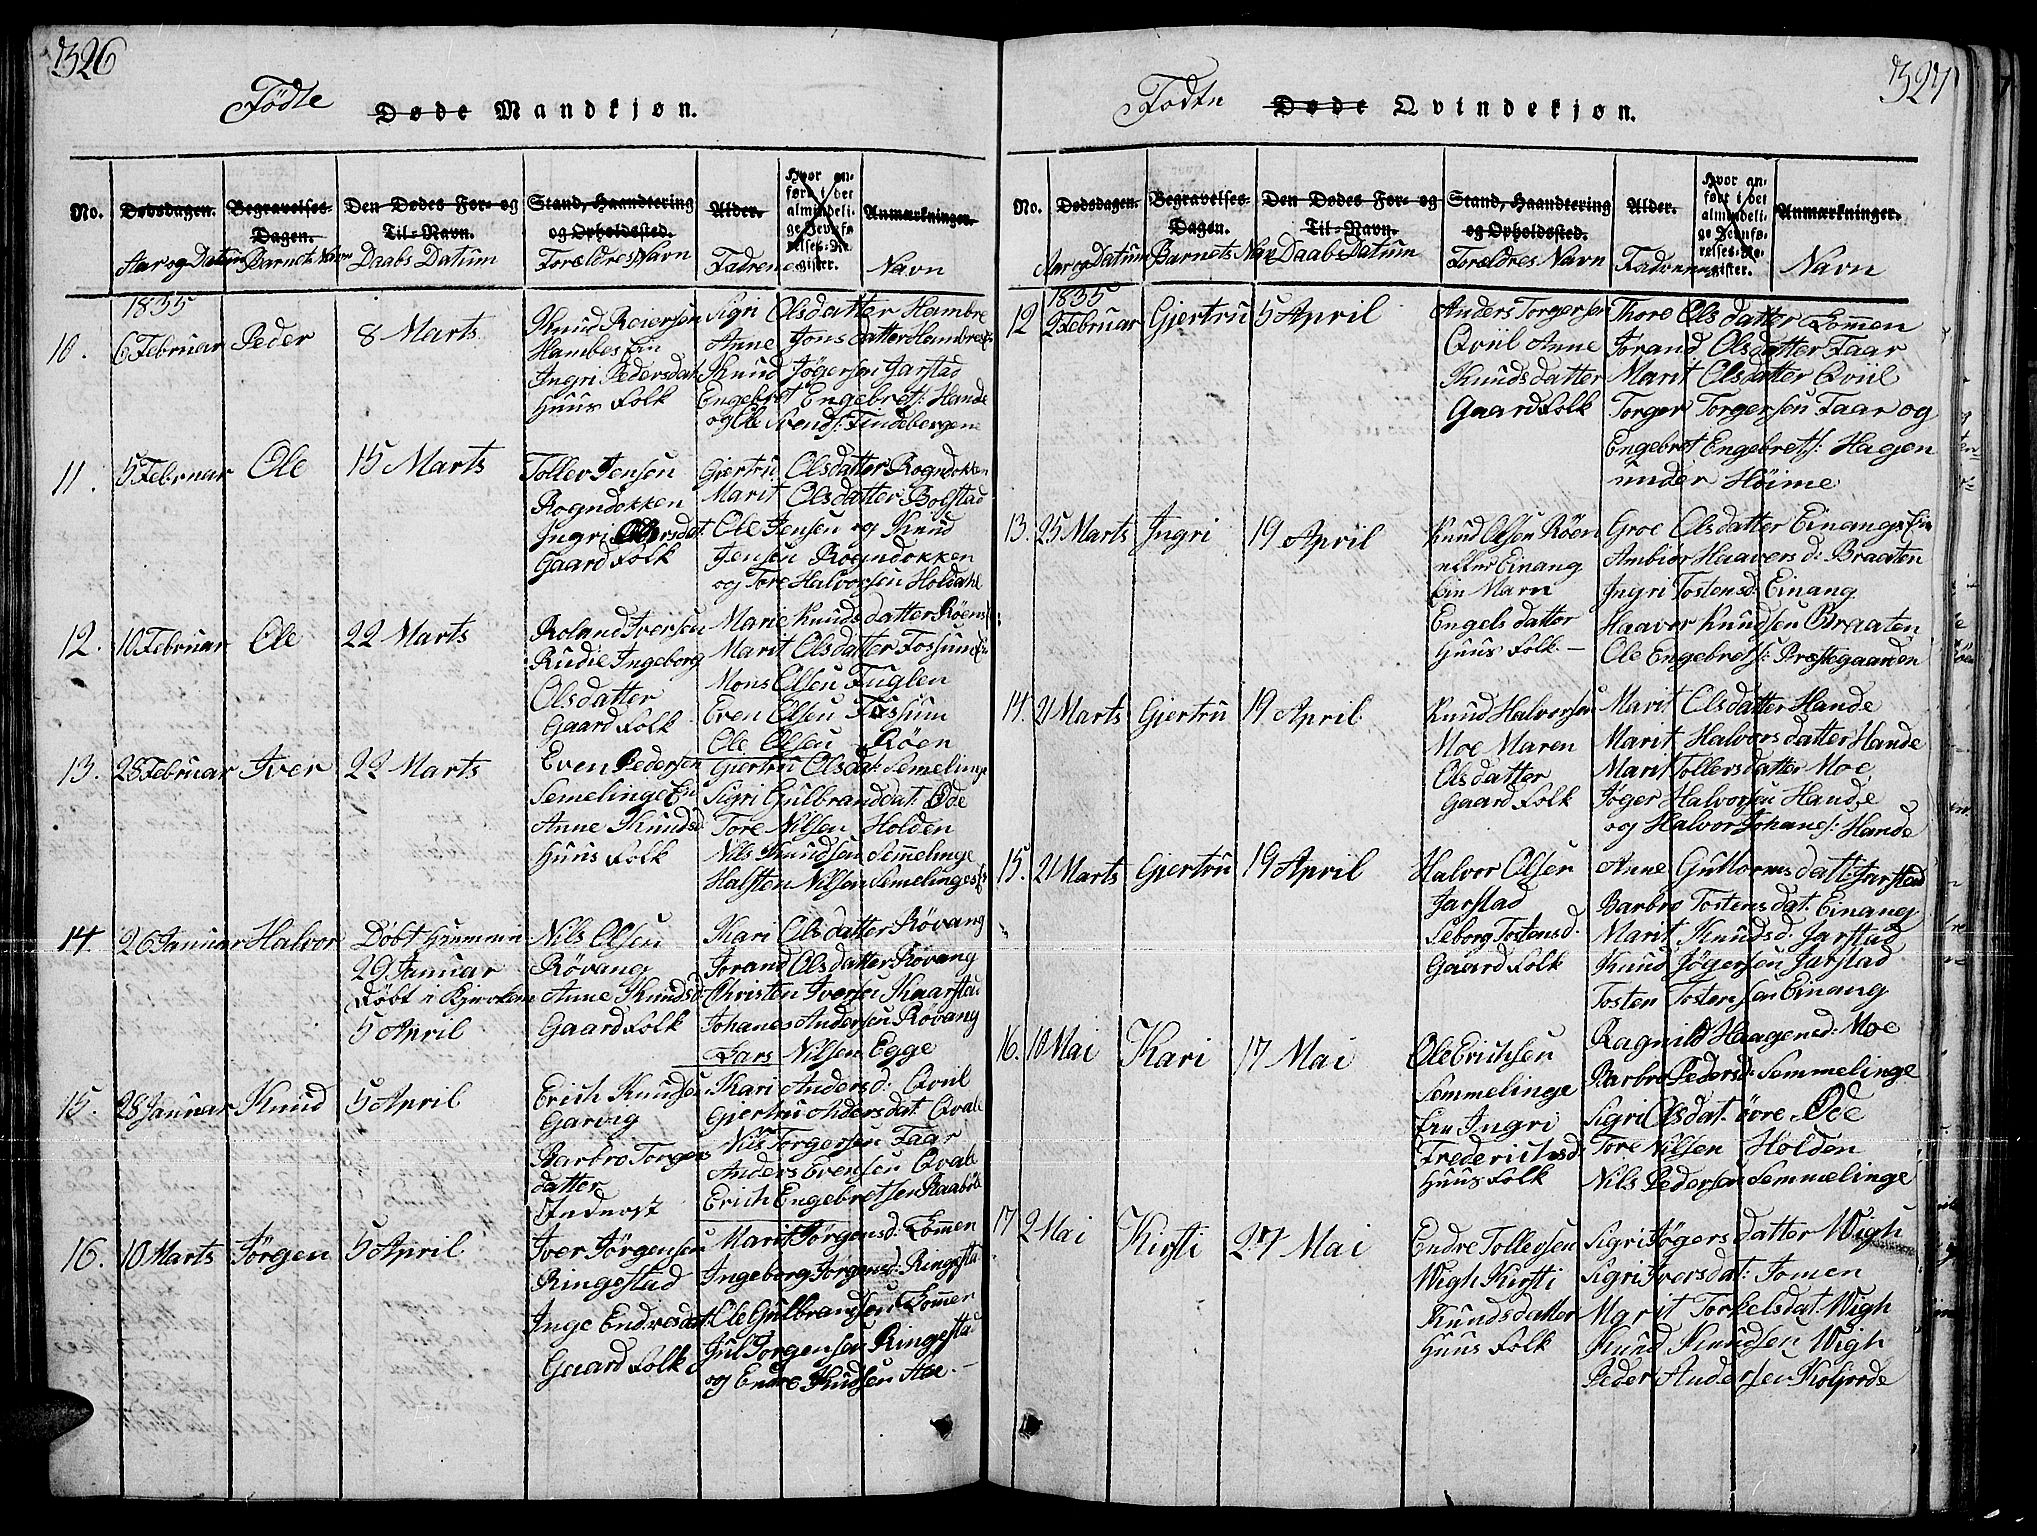 326
Fødte Døde Mandkjøn.
No. Dødsdagen. Begravelses-Dagen. Den Dødes For- og Til-Navn. Stand, Haandtering og Opholdssted. Alder. Hvor anført i det almindelige Jevnførelses-Register. Anmærkninger.
Aar og Datum Barnets Navn Daabs Datum Forældres Navn Fadrenes Navn
1835
10. 6 Februar Peder 8 Marts
Knud Reiersen
Hambes Ein
Ingri Pedersdat
Huus Folk
Sigri Olsdatter Hambre
Anne Jonsdatter Hambres E
Knud Jøgersen Jarstad
Engebret Engebrets: Hande
og Ole Svends: Findebergene
11. 5 Februar Ole 15 Marts
Tollev Jensen
Rogndokken
Ingri Olersdat
Gaard Folk
Gjertru Olsdatter Rogndokken
Marit Olsdatter Bolstad
Ole Jensen og Knud
Jensen Rogndokken
og Tore Halvorsen Holdahl
12. 10 Februar Ole 22 Marts
Roland Iversen
Rudie Ingeborg
Olsdatter
Gaard Folk
Marie Knudsdatter Røens
Marit Olsdatter Fossum
Mons Olsen Fuglen
Even Olsen Fossum
Ole Olsen Røen
13. 28 Februar Iver 22 Marts
Even Pedersen
Semelinge En
Anne Knudsd
Huus Folk
Gjertru Olsdat: Semelinge
Sigri Gulbranddat: Øde
Tore Nilsen Holden
Nils Knudsen Semelinge
Halsten Nilsen Semelinges
14. 26 Januar Halvor Døbt hiemme
29 Januar
Døbt i Kjirken
5 April
Nils Olsen
Røvang
Anne Knudsd
Gaard Folk
Kari Olsdatter Røvang
Jorand Olsdatter Røvang
Christen Iversen Kaarstad
Johanes Andersen Røvang
Lars Nilsen Egge
15. 28 Januar Knud 5 April
Erich Knudsen
Garvig
Barbro Torgers
datter
Indnost
Kari Andersd: Qviil
Gjertru Andersdat: Qvale
Nils Torgersen Faar
Anders Evensen Qvale
Erich Engebretsen Raabøle
16. 10 Marts Jørgen 5 April
Iver Jørgensen
Ringestad
Inge Endresdat
Gaard Folk
Marit Jørgensd: Lomen
Ingeborg Jorgensd: Ringesta
Ole Gulbrandsen Lomen
Jul Jorgensen Ringestad
og Endre Knudsen Aae.
327
Fødte Døde Qvindekjøn.
No. Dødsdagen. Begravelses-Dagen. Den Dødes For- og Til-Navn. Stand, Haandtering og Opholdssted. Alder. Hvor anført i det almindelige Jevnførelses-Register. Anmærkninger.
Aar og Datum Barnets Navn Daabs Datum Forældres Navn Fadrenes Navn
1835
12 2 Februar Gjertru 5 April
Anders Torgersen
Qviil Anne
Knudsdatter
Gaard Folk
Thore Olsdatter Lomen
Jorand Olsdatter Faar
Marit Olsdatter Qviil
Torger Torgersen Faar og
Engebret Engebrets: Hagen
under Høime
13. 25 Marts Ingri 19 April
Knud Olsen Røen
Einang
Ein Marn
Engelsdatter
Huus Folk
Groe Olsdatter Einangs Ein
Ambior Haavers d: Braaten
Ingri Tostensd: Einang
Haavor Knudsen Braaten
Ole Engebrets: Præstegaarden
14. 21 Marts Gjertru 19 April
Knud Halvorsen
Moe Maren
Olsdatter
Gaard Folk
Marit Olsdatter Hande
Marit Halvorsdatter Hande
Marit Tollersdatter Moe
Jøger Halvorsen Hande
og Halvor Johanes: Hande
15. 21 Marts Gjertru 19 April
Halvor Olsen
Jarstad
Seborg Tostensd.
Gaard Folk
Anne Guttormsdatt: Jarstad
Barbro Tostensdat. Einang
Marit Knudsd. Jarstad
Knud Jøgersen Jarstad
Tosten Tostensen Einang
16. 10 Mai Kari 17 Mai
Ole Erichsen
Semmelinge
Ein Ingri
Frederichsd
Huus Folk
Ragnild Haagensd: Moe
Barbro Pedersd: Semmelinge
Sigri Olsdat: øvre Øde
Tore Nilsen Holden
Nils Pedersen Semmelinge
17 2 Mai Kirsti 27 Mai
Endre Tollevsen
Wigh Kirsti
Knudsdatter
Huus Folk
Sigri Jøgersdatter Wigh
Sigri Iversdat: Jomen
Marit Torkelsdat. Wigh
Knud Knudsen Wigh
Peder Andersen Kolsrode